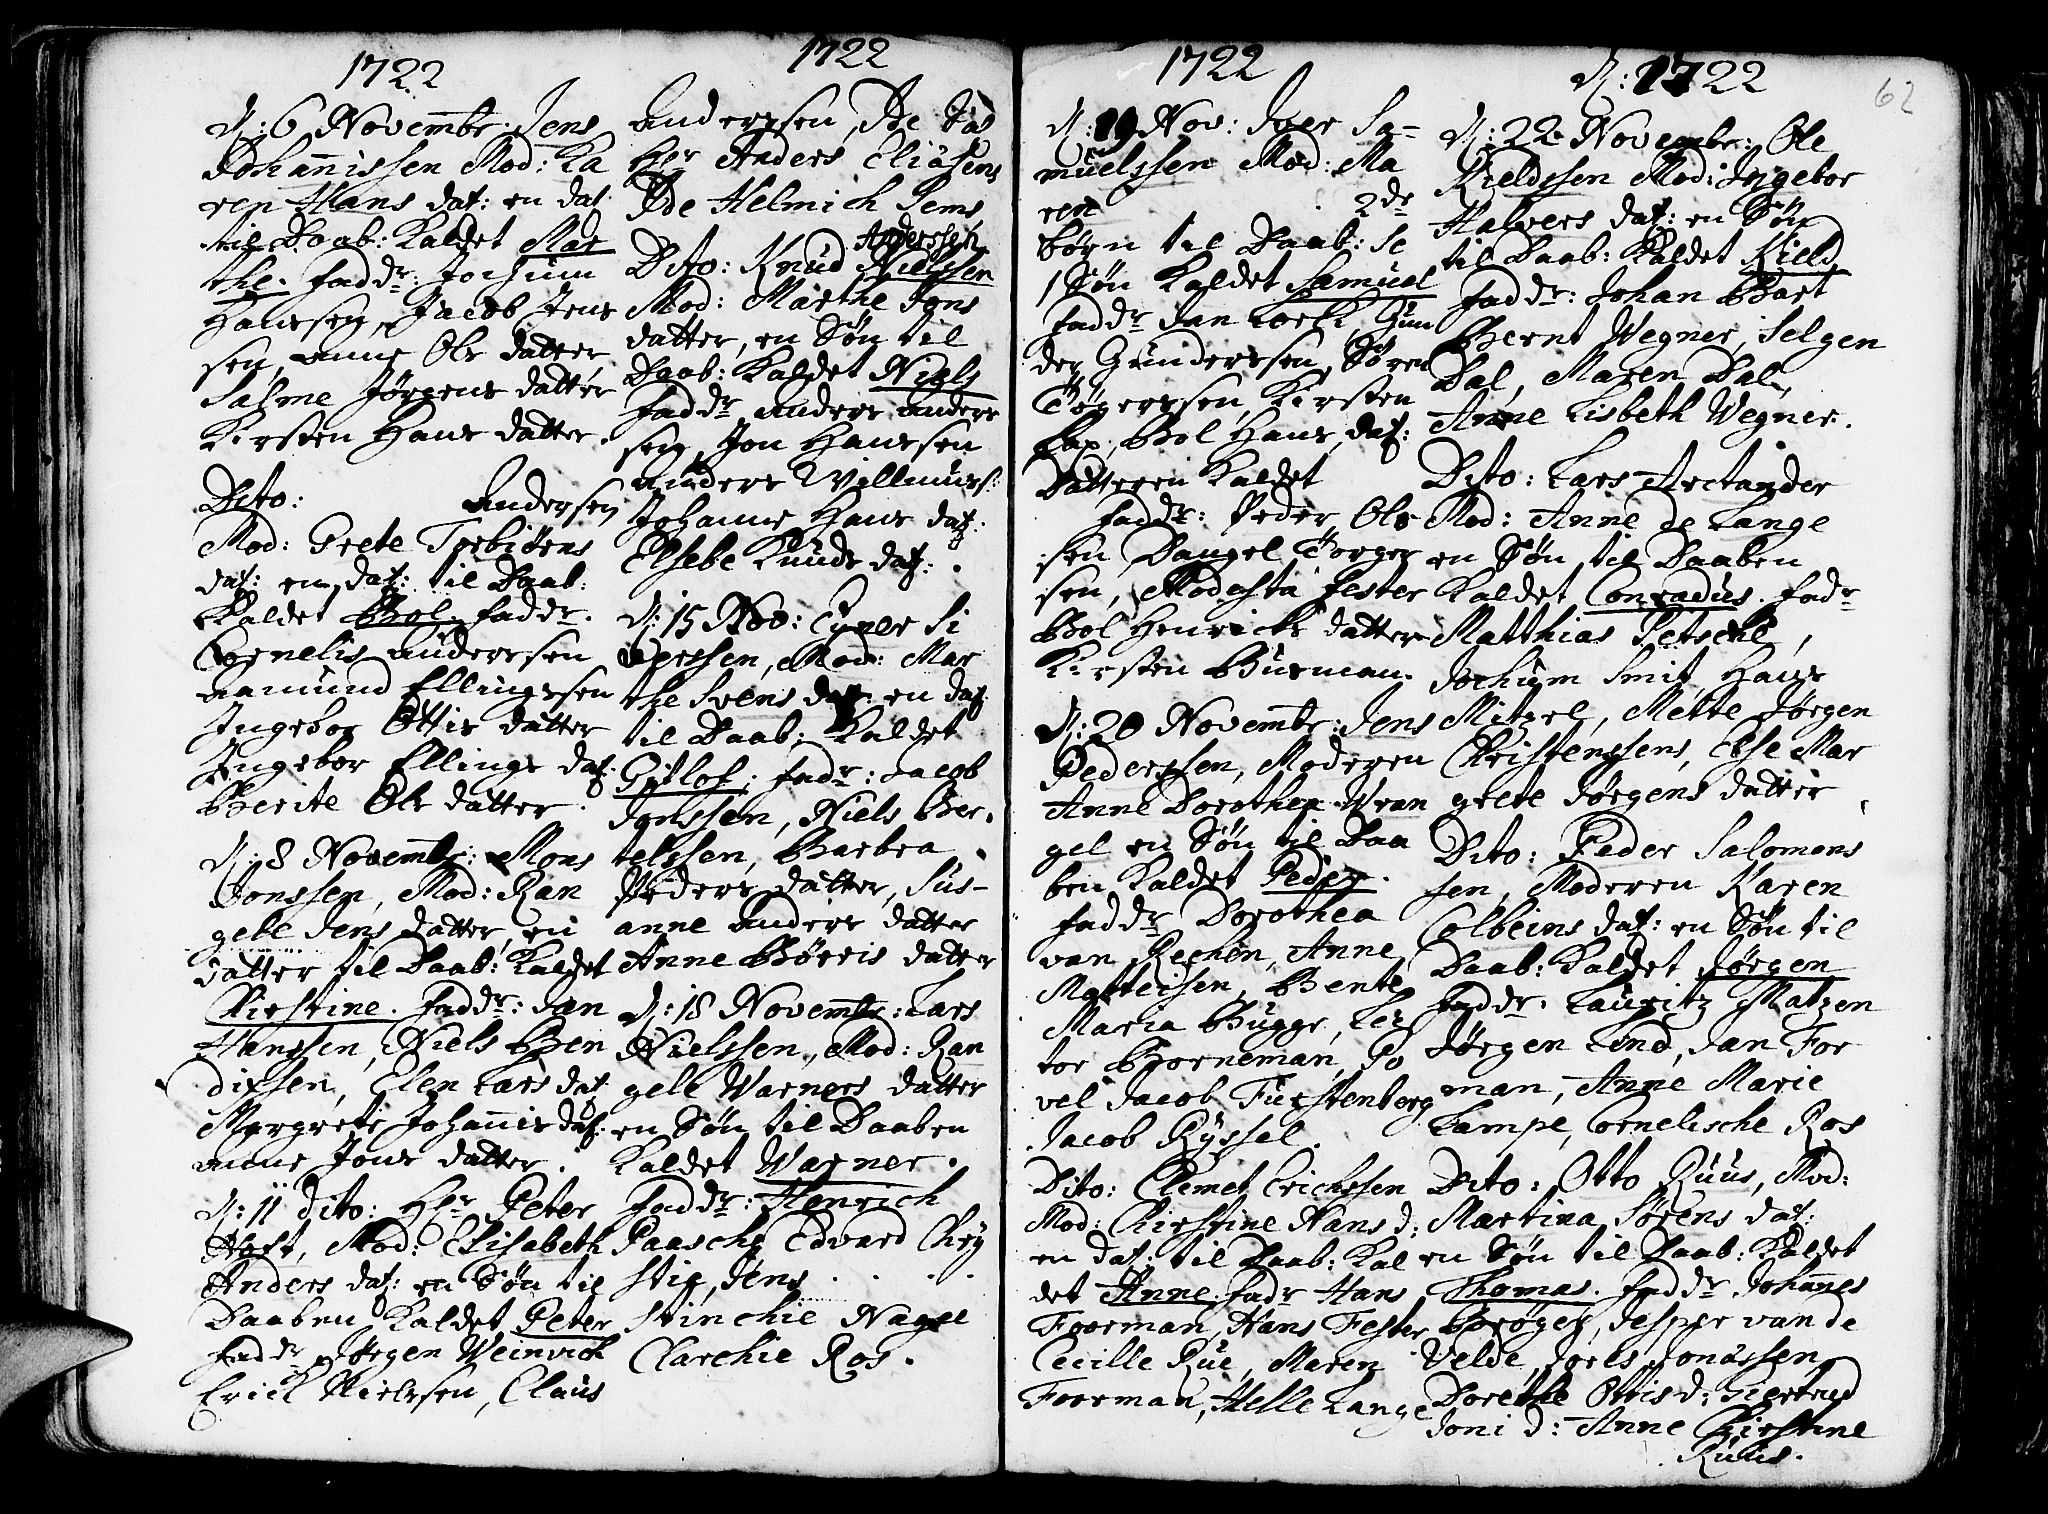 1722
D: 6 Novembr: Jens
Johannissen Mod: Ka
ren Hans dat: en dat
til Daab: Kaldet Mar
the. Fadd: Jochum
Hanssen, Jacob Jens
sen, Anne Ols datter
Salme Jørgens datter
Kirsten Hans datter.
Dito: Andersen
Mod: Grete Torbiørns
dat: en dat: til Daab:
Kaldet Bol. Fadd.
Cornelis Anderssen
Aamund Ellingssen
Ingebor Ottis datter
Ingebor Ellings dat:
Berite Ols datter.
D: 8 Novembr: Mons
Jonssen, Mod: Ran
gele Jens datter, en
datter til Daab: Kaldet
Christine. Fadd: Jan
Hanssen, Niels Ben
dixsen, Elen Lars dat
Margrete Johannis dat:
Anne Jons datter.
D: 11 dito: Hr Peter
Hoft, Mod: Elisabeth
Anders dat: en Søn til
Daaben Kaldet Peter
Fadd Jørgen Weinvich
Erick Nielssen, Claus
1722
Anderssen, De Sas
Hr Anders Eliasens
De Helmich Jems
Anderssen
Dito: Knud Nielssen
Mod: Marthe Jons
datter, en Søn til
Daab: Kaldet Niels
Fadd Anders Anders
sen, Jon Hanssen
Anders Willums:
Johanne Hans dat:
Elsebe Knuds dat:.
D: 15 Nov: Eyner Si
verssen, Mod: Mar
the Svens dat: en dat:
til Daab: Kaldet
Gitlof: Fadr: Jacob
Jonssen, Niels Ber
telssen, Barbra
Peders datter, Sus-
anne Anders datter
Anne Børris datter
D: 18 Novembr: Lars
Nielssen, Mod: Ran
gele Warners datter
en Søn til Daaben
Kaldet Warner.
Fadd: Henrich
Paasche Edvard Chry
stie, Jens . . . .
Stinchie Nagel
Clarchie Ros.
1722
D: 19 Nov: Iver Sa-
muelssen Mod: Ma
ren 2de
Børn til Daab: Se
1 Søn Kaldet Samuel
Fadd Jan Lorck, Gun
der Gunderssen, Søren
Tøgerssen, Kirsten
Dax, Bol Hans dat:
Datteren Kaldet
Fadd: Peder Ols
sen Daugel Torger
sen, Modesta Fester
Bol Henricks datter
Kirsten Busman.
D: 20 Novembr: Jens
Pederssen, Moderen
Anne Dorothea Wran
gel en Søn til Daa
ben Kaldet Peder.
Fadd Dorothea
van Rechen, Anne
Matteisen, Bente
Maria Bugge, Lec
tor Borneman, Po
vel Jacob Furstenberg
Jacob Ryssel.
Dito: Clemet Erichssen
Mod: Christine Hans d:
en dat: til Daab: Kal
det Anne. Fadr Hans
Foorman, Hans Fester
Cecille Rue, Maren
Foorman, Helle Lange
D: 1722
62
D: 22 Novembr: Ole
Kieldssen Mod: Ingebor
Halvers dat: en Søn
til Daab: Kaldet Kield
Fadd: Johan Bart
Bernt Wegner, Selgen
Dal, Maren Dal,
Anne Lisbeth Wegner.
Dito: Lars Arctander
Mod: Anne de Lange
en Søn til Daaben
Kaldet Conradus. Fad
Matthias Petsche,
Jochum Smit, Hans
Mitzel, Mette Jørgen
Christenssens, Else Mar
grete Jørgens datter
Dito: Peder Salomons
sen, Moderen Karen
Colbeins dat: en Søn til
Daab: Kaldet Jørgen
Fadd. Lauritz Matzen
Jørgen Lind, Jan For
man, Anne Marie
Lampe, Cornelische Ros
Dito: Otto Ruus, Mod:
Martina Sørens dat:
en Søn til Daab: Kaldet
Thomas. Fadd Johannes
Brøger, Jesper van de
Velde, Joris Jonassen
Dorethe Ottis d: Giertrud
Joni d: Anne Christine
Ruus.